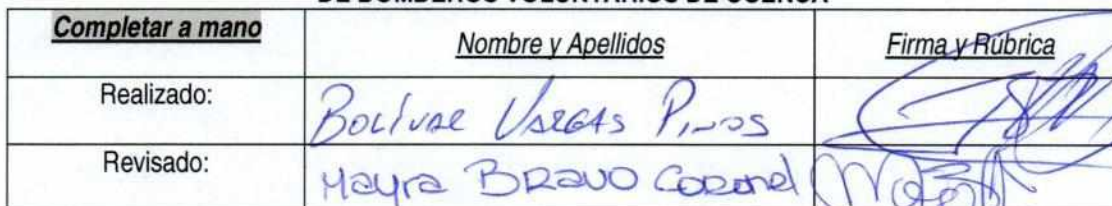 DE BOMBEROS VOLUNTARIOS DE CUENCA
Completar a mano Nombre y Apellidos Firma y Rúbrica
Realizado: Bolívar Vargas Pinos
Revisado: Mayra BRAVO Coronel